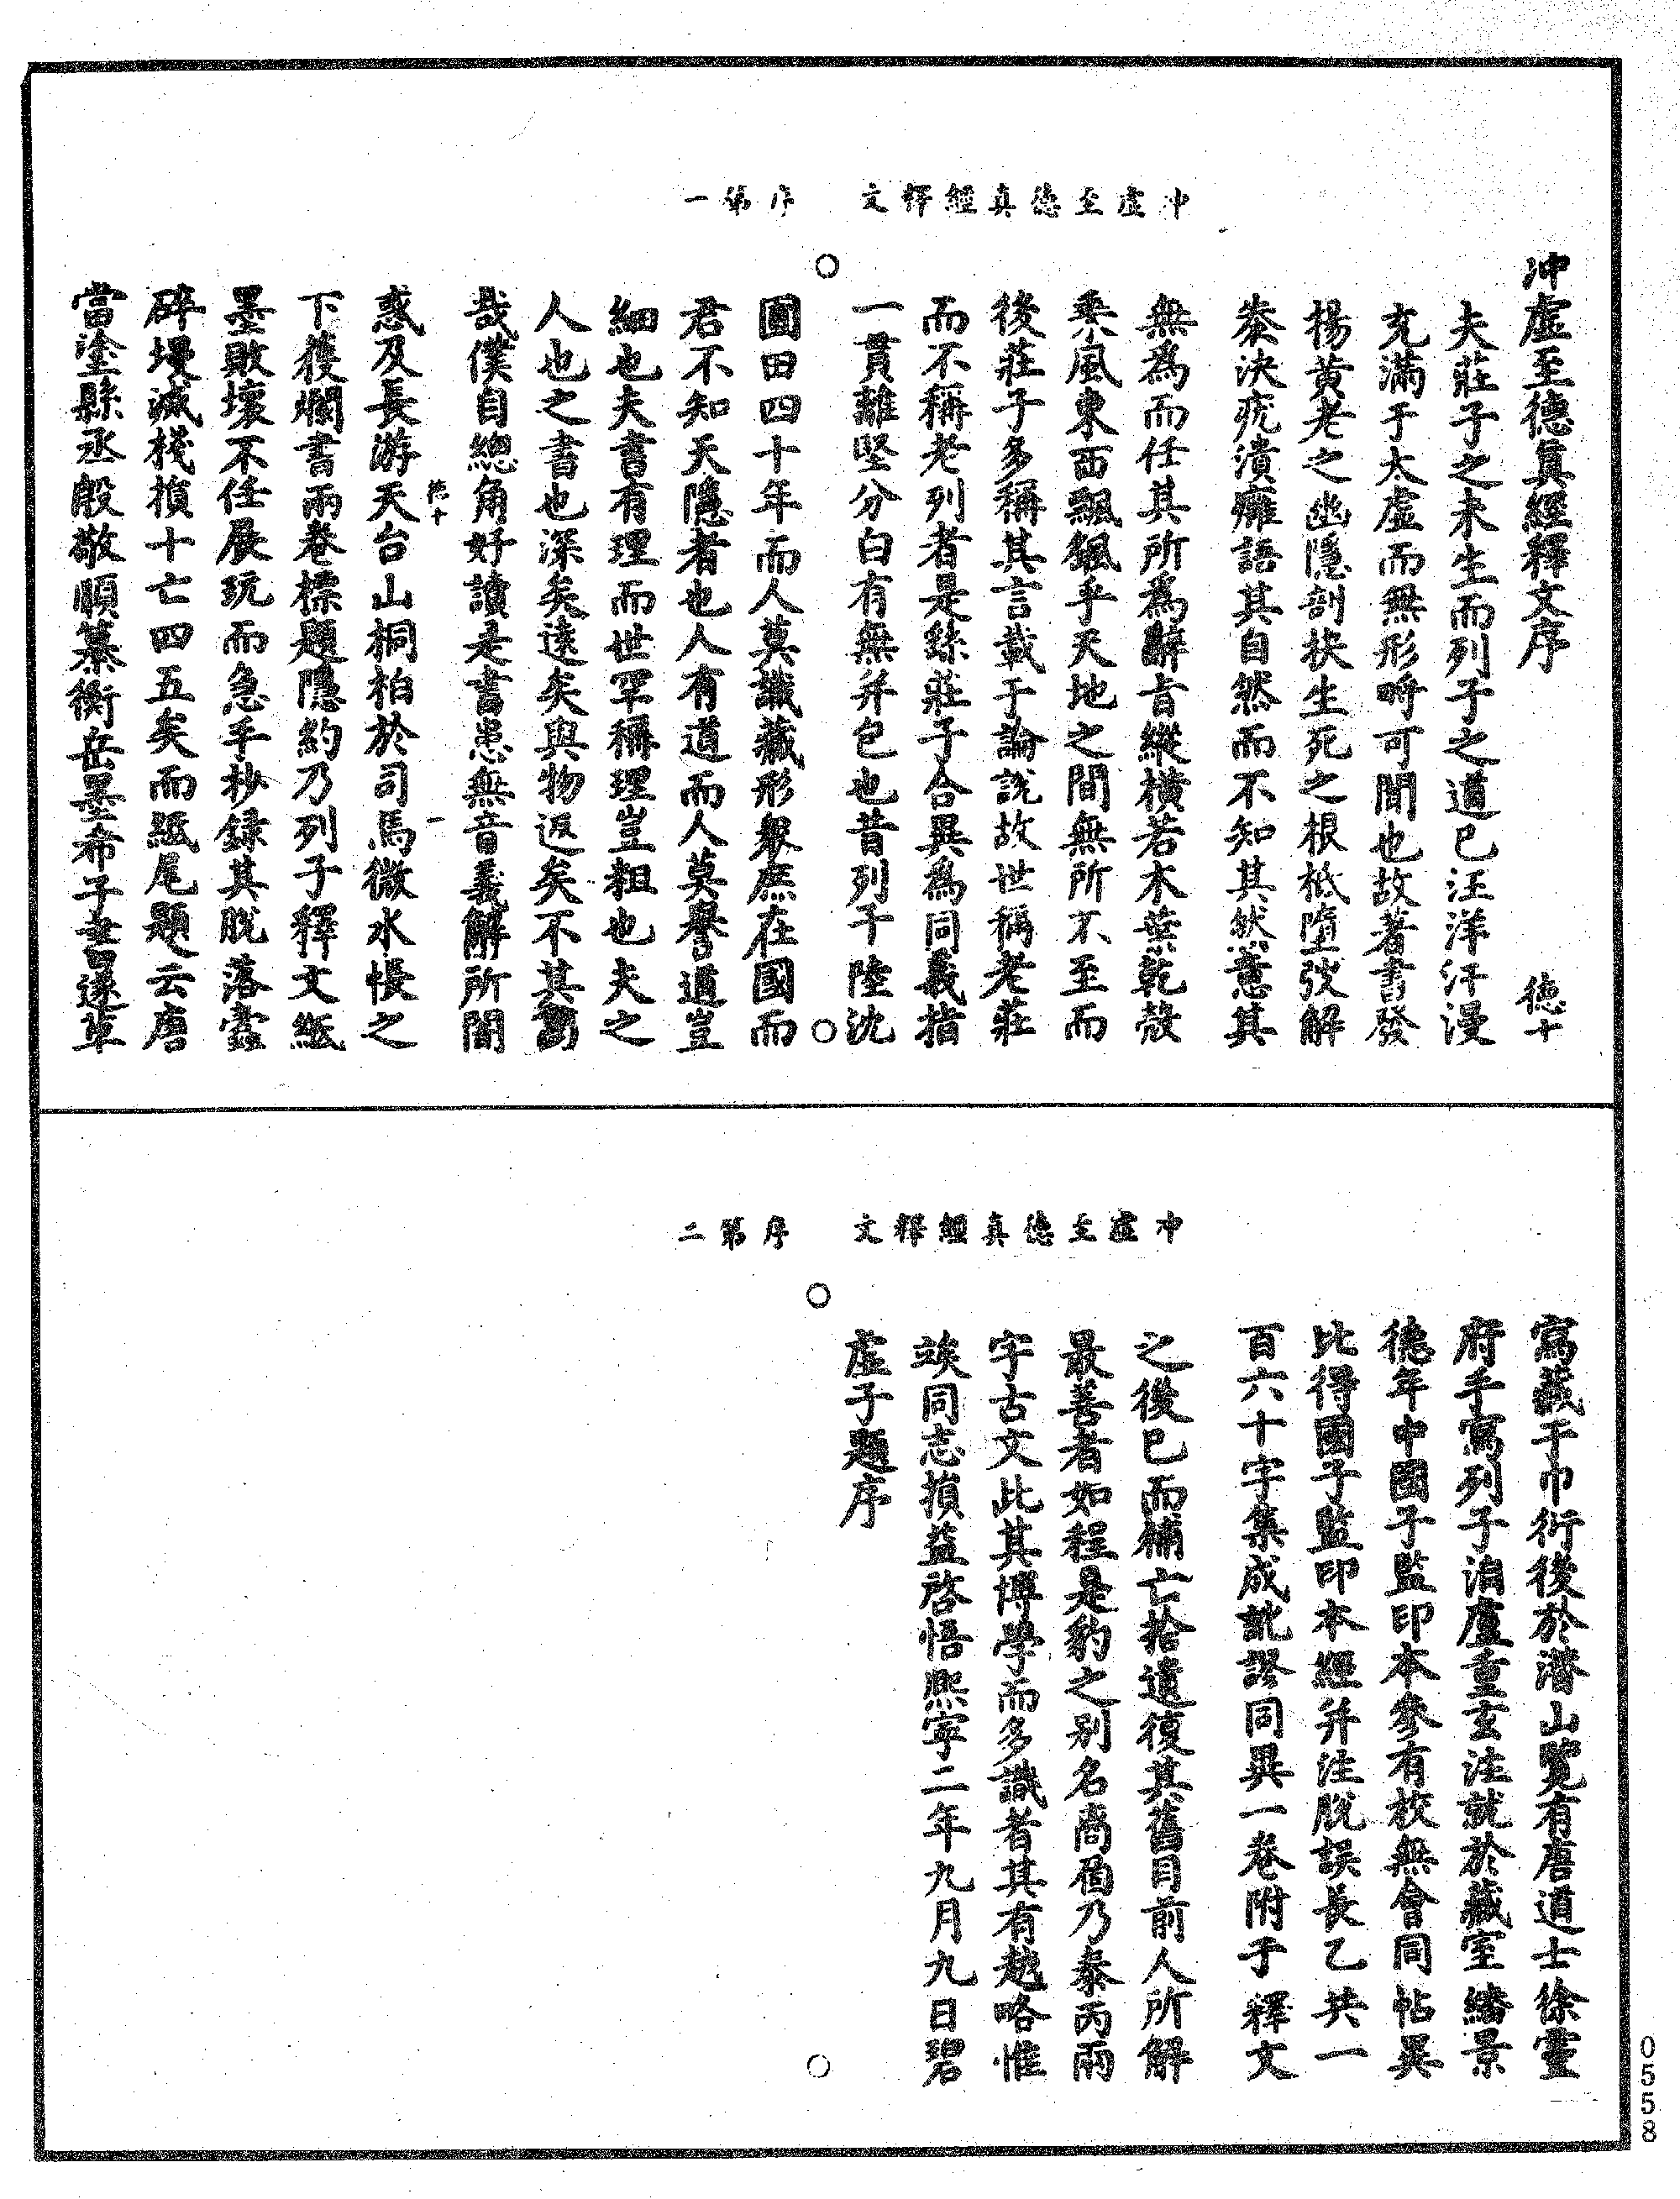 冲虛至德真經釋文　序第一
冲虛至德真經釋文序　德十
夫莊子之未生而列子之道已汪洋汗漫
充滿于太虛而無形㖭可聞也故著書發
揚黃老之幽隱剖抉生死之根柢墮弢解
桊決疣潰癰語其自然而不知其然意其
無為而任其所為辭旨縱橫若木葉乾殼
乘風東西飄飖乎天地之間無所不至而
後莊子多稱其言載于論說故世稱老莊
而不稱老列者是繇莊子合異為同義指
一貫離堅分白有無并包也昔列子陸沈
圃田四十年而人莫識藏形眾庶在國而
君不知天隱者也人有道而人莫譽道豈
細也夫書有理而世罕稱理豈粗也夫之
人也之書也深矣遠矣與物返矣不其高
哉僕自總角好讀是書患無音義解所閡
德十　一
惑及長游天台山桐柏於司馬微水帳之
下獲爛書兩卷標題隱約乃列子釋文紙
墨敗壞不任展玩而急手抄錄其脫落蠹
碎墁滅棧損十亡四五矣而紙尾題云唐
當塗縣丞殷敬順纂衡岳墨希子書遂草
冲虛至德真經釋文　序第二
寫藏于巾衍後於潛山覽有唐道士徐靈
府手寫列子洎盧重玄注就於藏室繙景
德年中國子監印本參有校無會同帖異
比得國子監印本經并注脫誤長乙共一
百六十字集成訛謬同異一卷附于釋文
之後已而補亡拾遺復其舊目前人所解
最善者如程是豹之別名㕯㕯乃泰丙兩
字古文此其博學而多識者其有越略惟
竢同志損益啓悟熙寧二年九月九日碧
虛子題序
0558